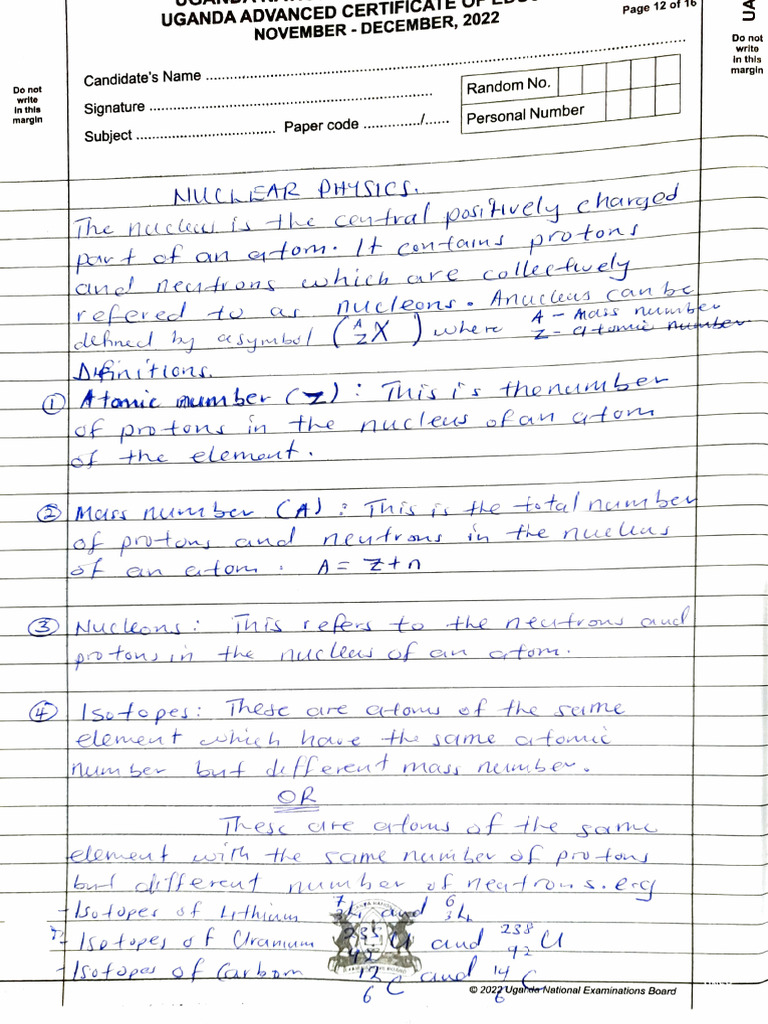 UGANDA ADVANCED CERTIFICATE OF EDUC
NOVEMBER - DECEMBER, 2022
Page 12 of 16
UA
Do not
write
in this
margin
Do not
write
in this
margin
Candidate's Name
Signature
Subject Paper code /
Random No.
Personal Number
NUCLEAR PHYSICS.
The nucleus is the central positively charged
part of an atom. It contains protons
and neutrons which are collectively
refered to as nucleons. Anucleus can be
defined by asymbol (ᴬ_Z X) where A - Mass number
Z - atomic number
Definitions.
① Atomic number (Z) : This is thenumber
of protons in the nucleus of an atom
of the element.
② Mass number (A) : This is the total number
of protons and neutrons in the nucleus
of an atom. A = Z+n
③ Nucleons : This refers to the neutrons and
protons in the nucleus of an atom.
④ Isotopes: These are atoms of the same
element which have the same atomic
number but different mass number.
OR
These are atoms of the same
element with the same number of protons
but different number of neutrons. e.g
- Isotopes of Lithium ⁷₃Li and ⁶₃Li
- Isotopes of Uranium ²³⁵₉₂U and ²³⁸₉₂U
- Isotopes of Carbon ¹²₆C and ¹⁴₆C
© 2022 Uganda National Examinations Board